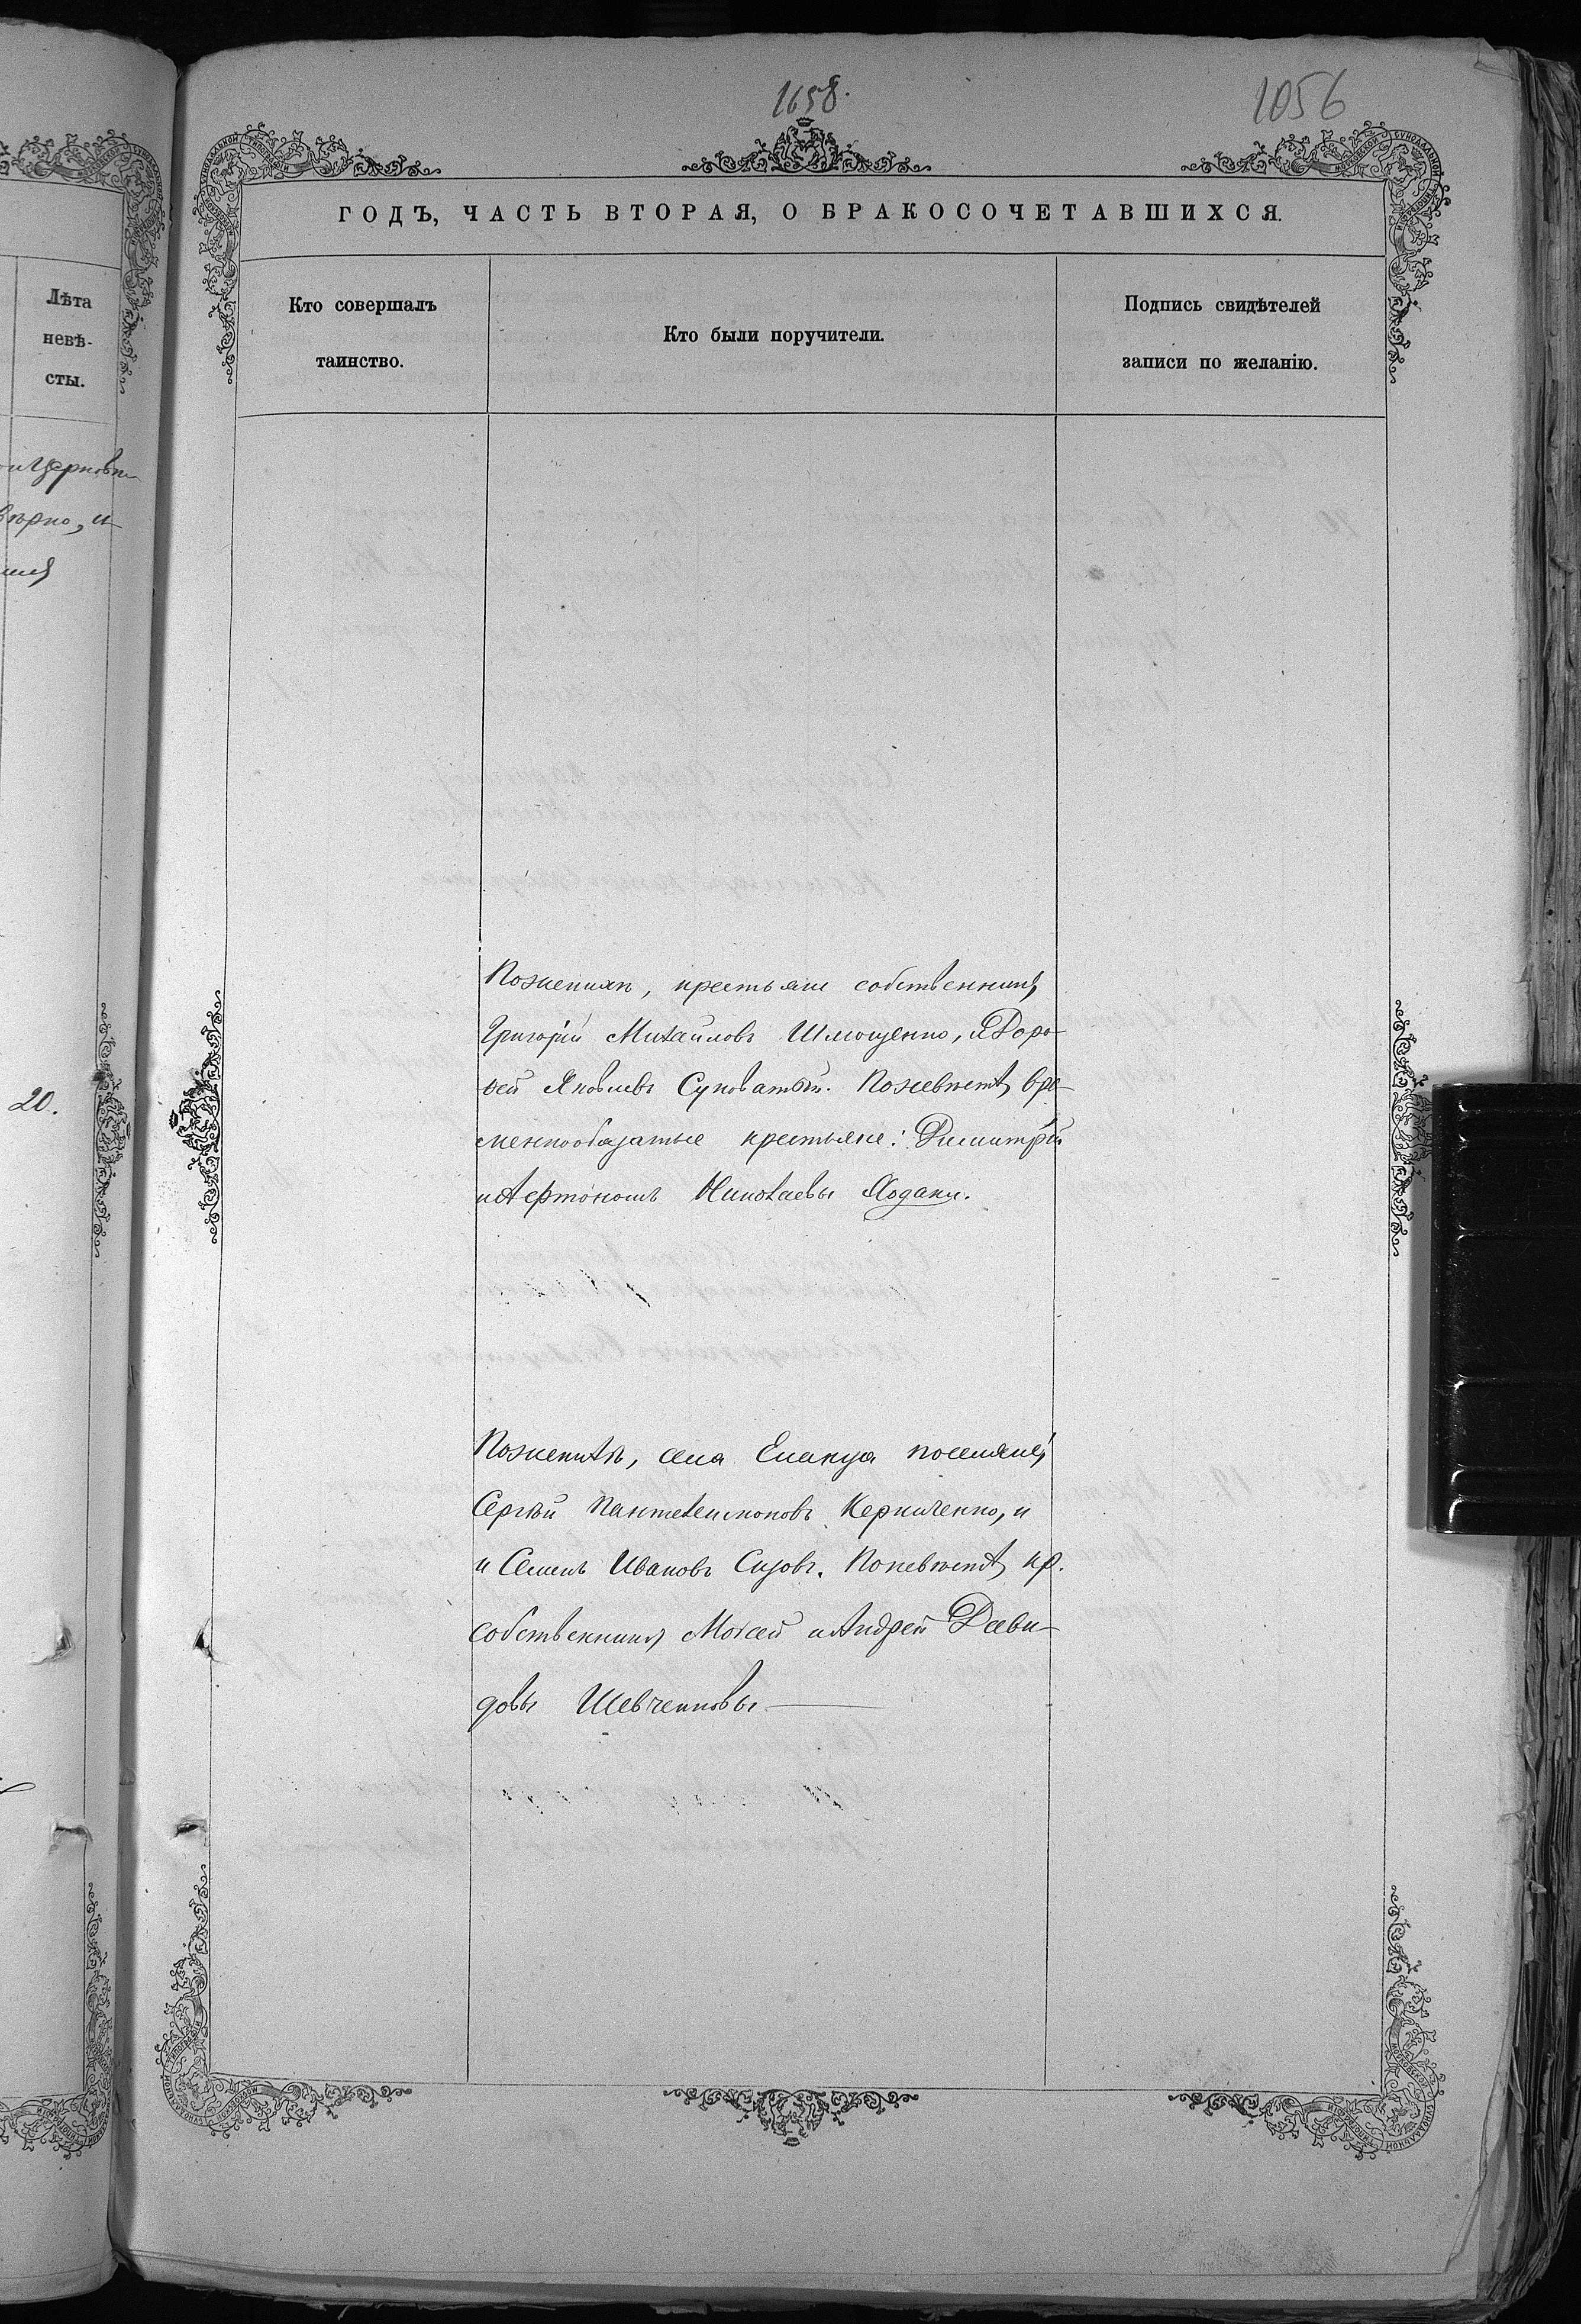 1658.
1056
ГОДЪ, ЧАСТЬ ВТОРАЯ, О БРАКОСОЧЕТАВШИХСЯ.
Лѣта
невѣ-
сты.
Кто совершалъ
таинство.
Кто были поручители.
Подпись свидѣтелей
записи по желанію.
вѣрно, и
20.
По женихѣ, крестьяне собственники,
Григорій Михаиловъ Шмощенко, и Доро-
ѳей Яковлевъ Суковатый. По невѣстѣ, вре-
меннообязатые крестьяне: Димитрій
и Николаевы Ходаки.
По женихѣ, села Еланца поселяне,
Сергѣй Пантелеимоновъ Керниченко, и
и Семенъ Ивановъ Сизовъ. По невѣстѣ, кр.
собственники, Моісей и Андрей Дави-
довы Шевченковы